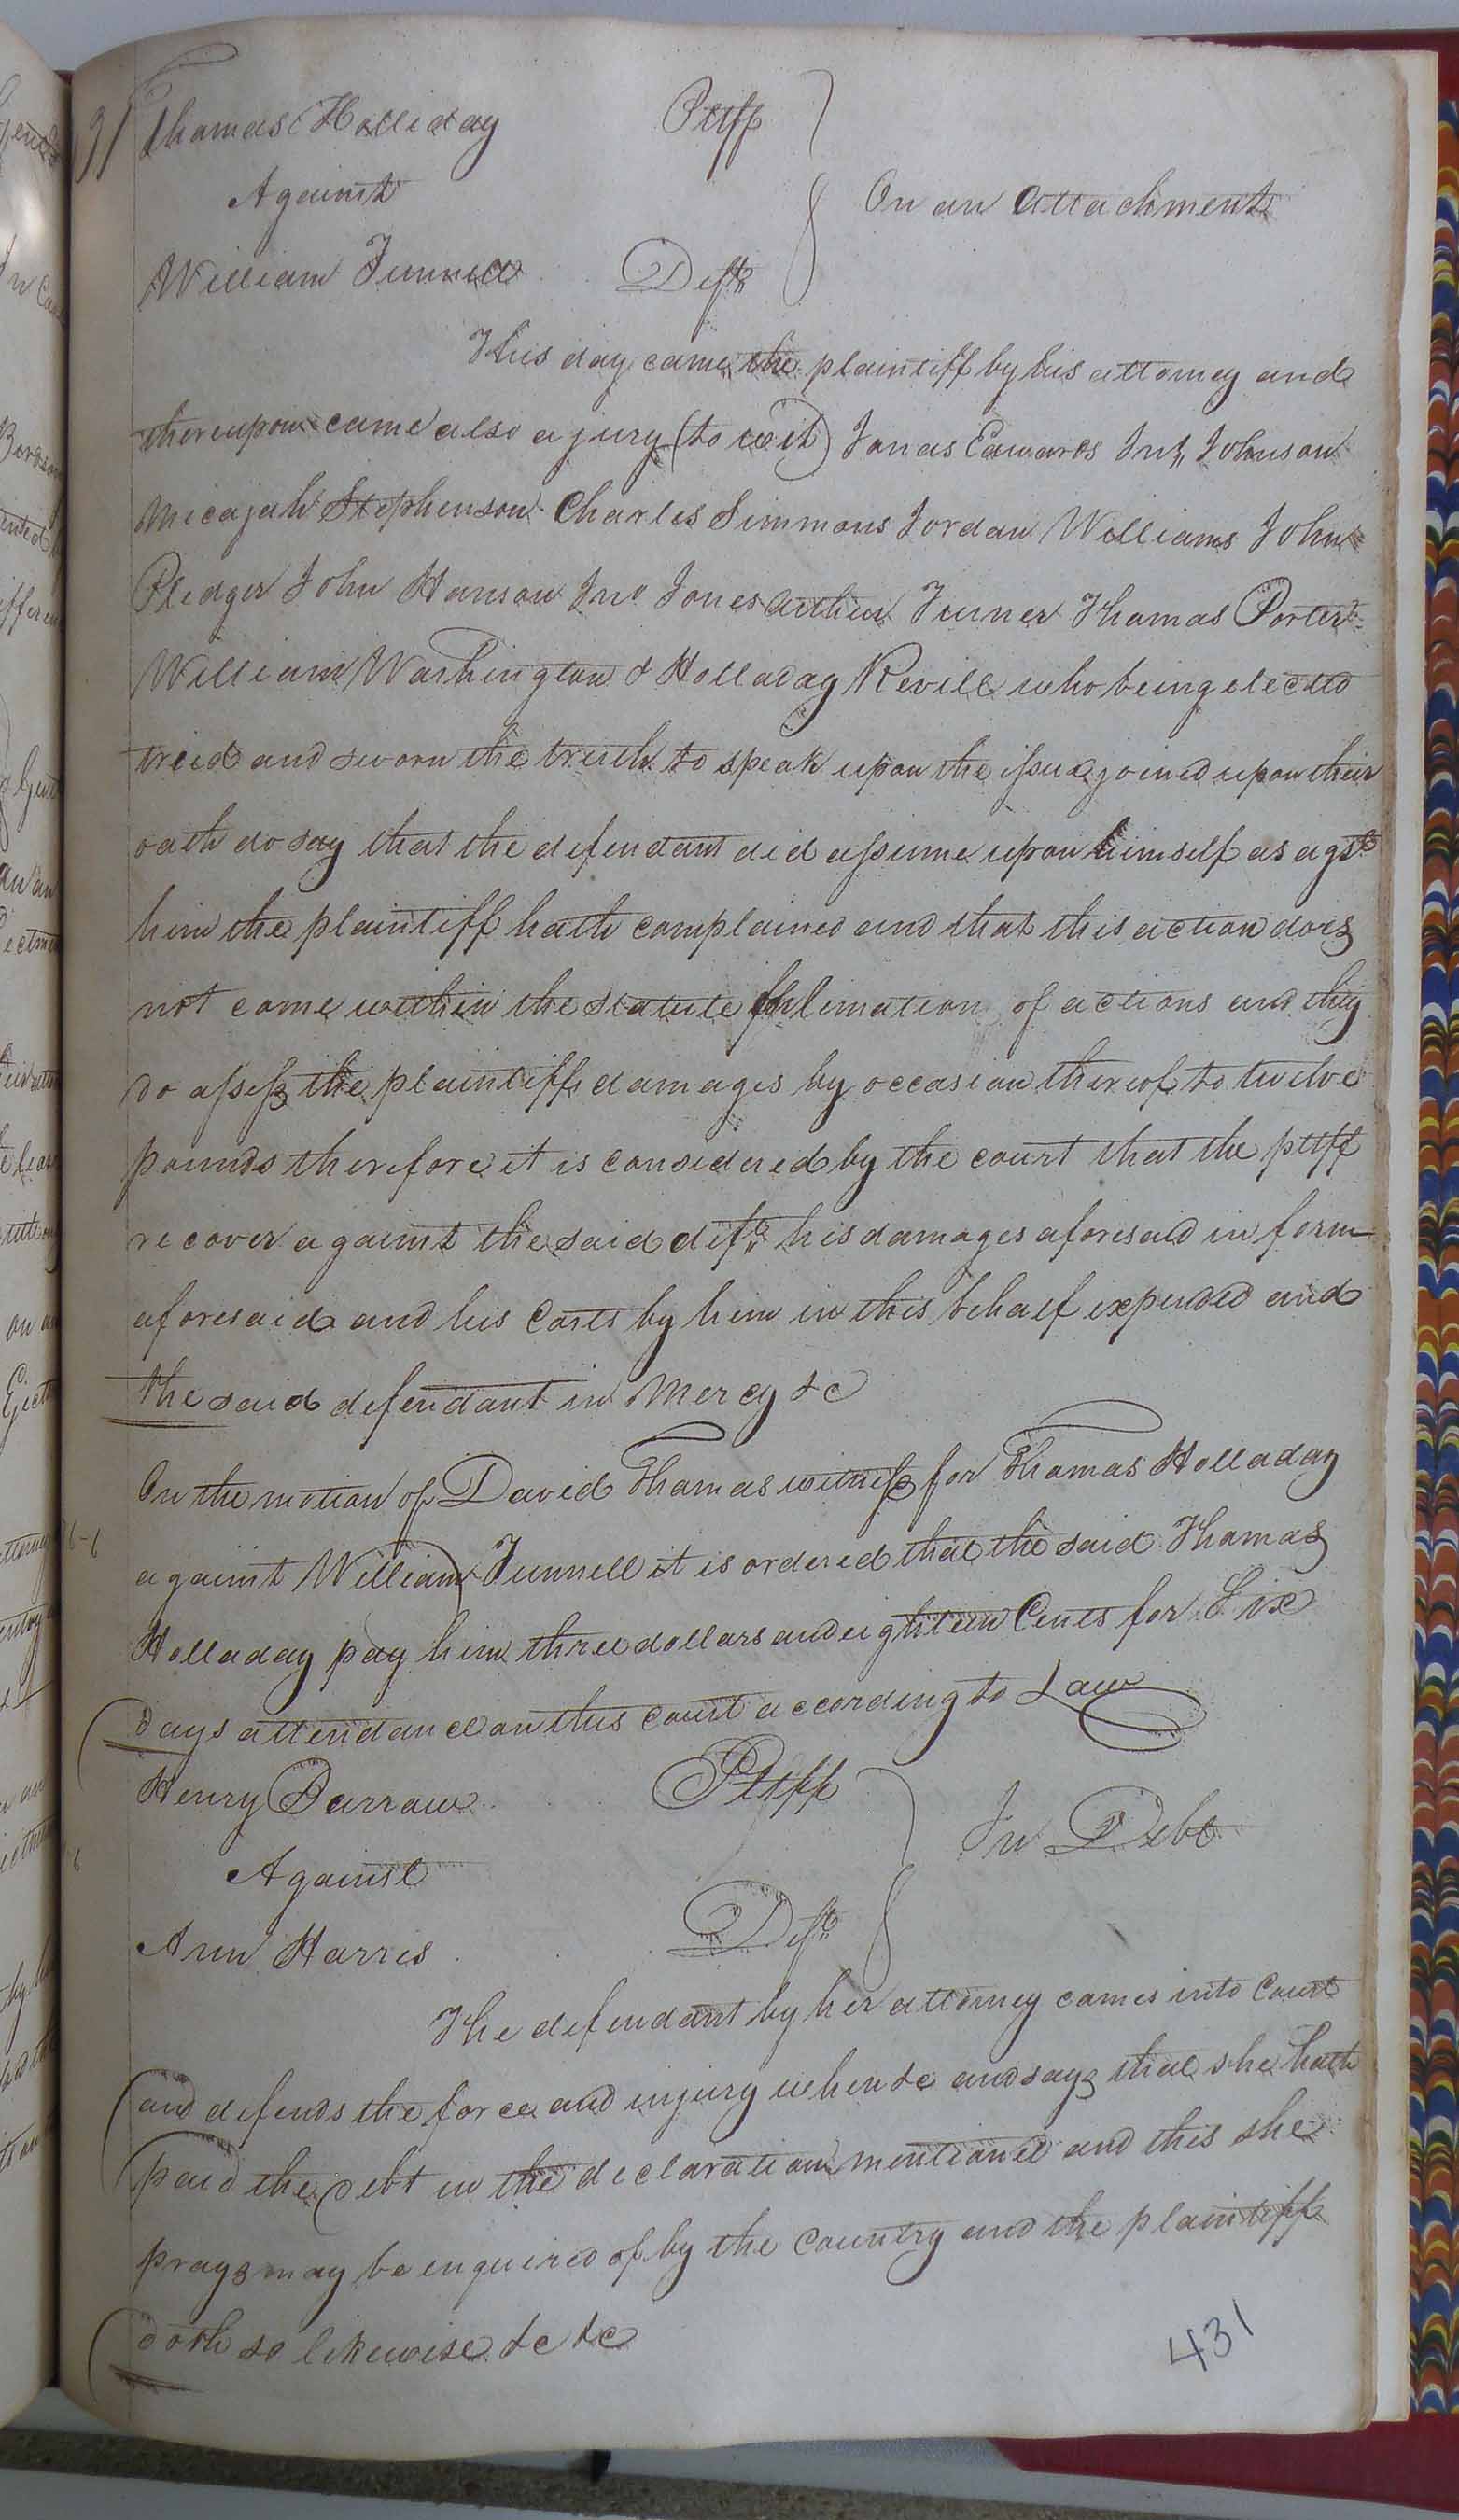 91 Thomas Holliday Pltff
Against On an Attachment
William Tunnell Deft
This day came the plaintiff by his attorney and
thereupon came also a jury (to wit) Jonas Edwards Johnson
Micajah Stephenson Charles Simmons Jordan Williams John
Pledger John Hanson Jno Jones Arthur Turner Thomas Porter
William Washington & Holladay Revill who being elected
tried and sworn the truth to speak upon the issue joined upon their
oath do say that the defendant did assume upon himself as agst
him the plaintiff hath complained and that this action does
not come within the statute for limation of actions and they
do assess the plaintiffs damages by occasion thereof to twelve
pounds therefore it is considered by the court that the pltff
recover against the said deft his damages aforesaid in form
aforesaid and his Costs by him in this behalf expended and
the said defendant in Mercy &c
On the motion of David Thomas witness for Thomas Holladay
against William Tunnell it is ordered that the said Thomas
Holladay pay him three dollars and eighteen Cents for Six
days attendance on this court according to Law
Henry Barrow Pltff
Against In Debt
Ann Harris Deft
The defendant by her attorney comes into Court
and defends the force and injury when &c and says that she hath
paid the debt in the declaration mentioned and this she
prays may be enquired of by the Country and the plaintiff
doth so likewise &c &c
431